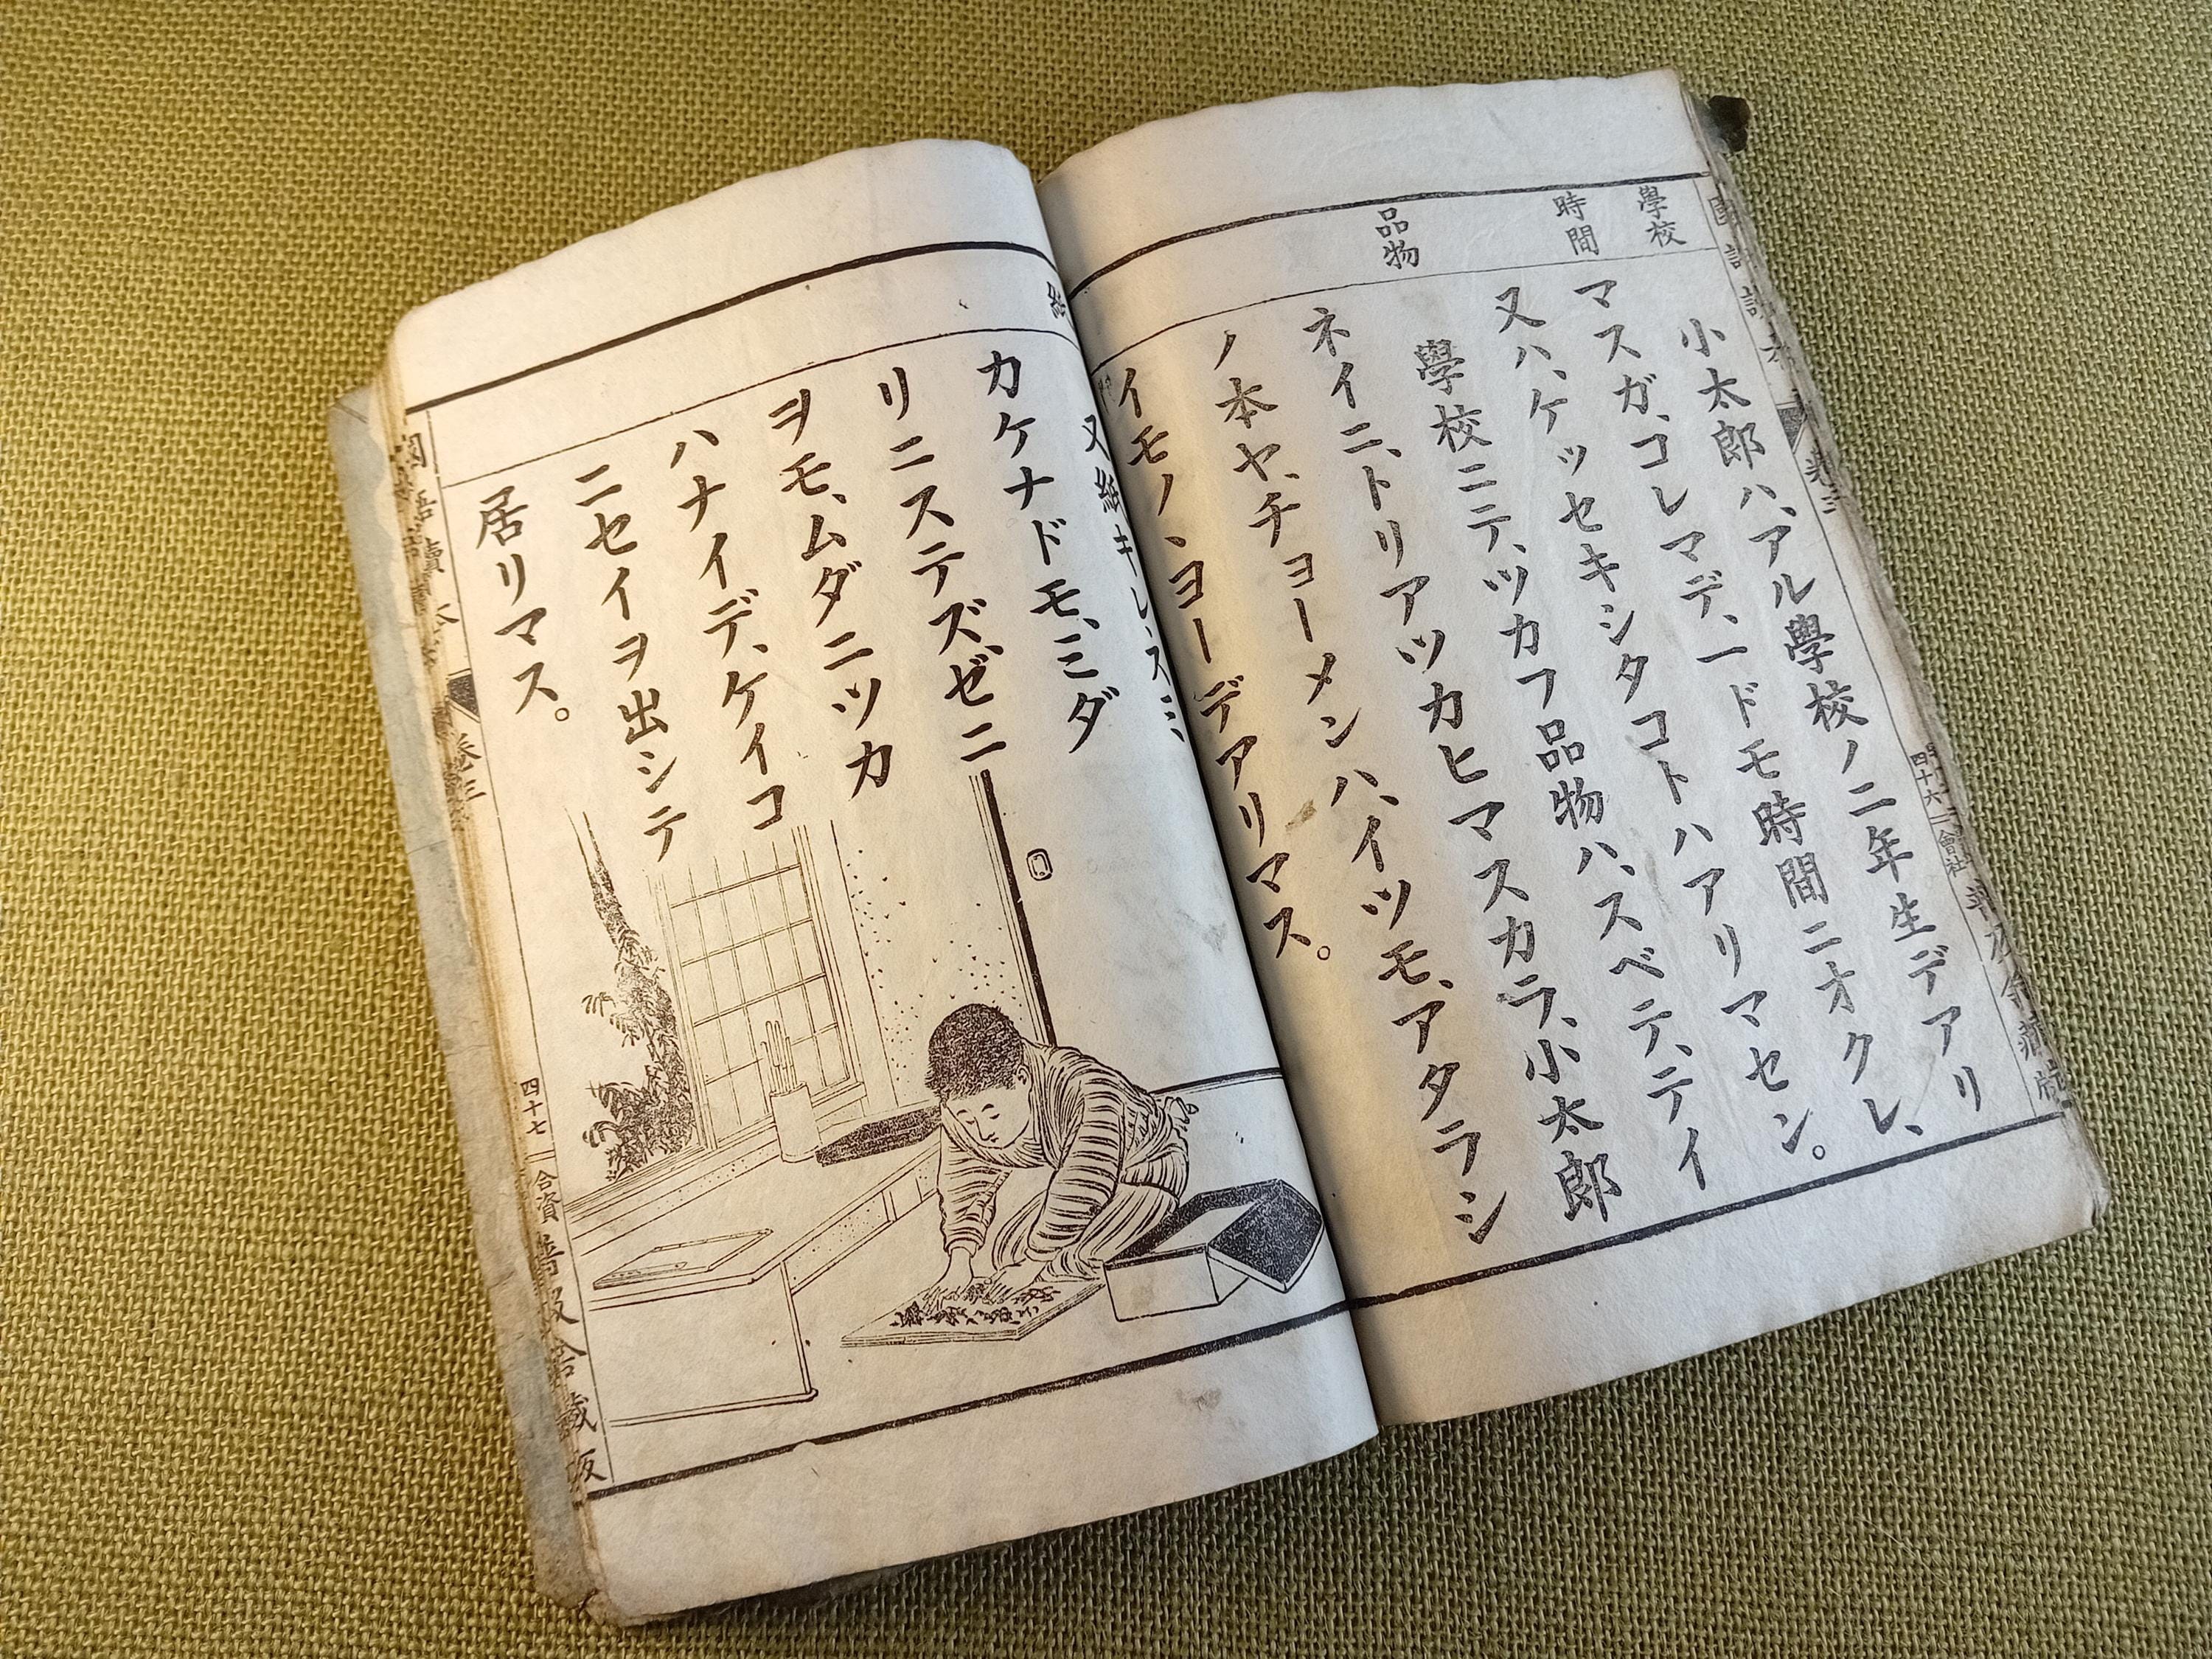 學校
時間
品物
小太郎ハ、アル學校ノ二年生デアリ
マスガ、コレマデ、一ドモ時間ニオクレ、
又ハ、ケッセキシタコトハアリマセン。
學校ニテ、ツカフ品物ハ、スベテ、テイ
ネイニ、トリアツカヒマスカラ、小太郎
ノ本ヤ、チョーメンハ、イツモ、アタラシ
イモノヽヨーデアリマス。
四十六
會社
紙
又紙キレ、スミ
カケナドモ、ミダ
リニステズ、ゼニ
ヲモ、ムダニツカ
ハナイデ、ケイコ
ニセイヲ出シテ
居リマス。
國語讀本
卷三
四十七
合資
普及舍藏版